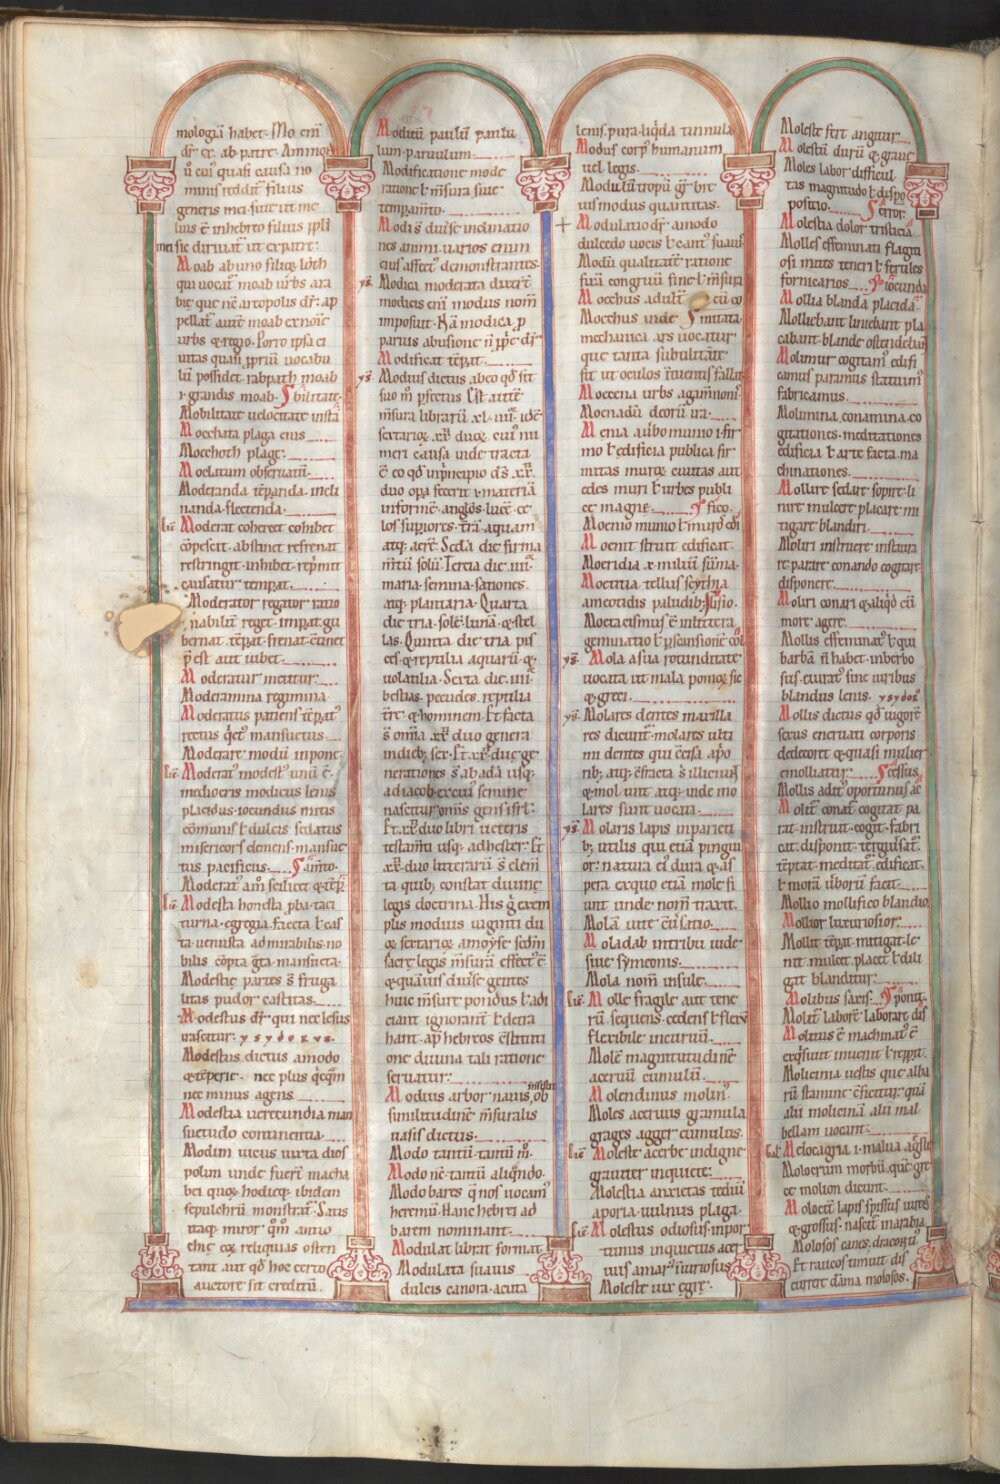 mologiā habet. Mo enī
dr̄ ex. ab patre. Ammon
ů cuiꝰ quasi causa no
minis reddit̄ filius
generis mei. siue ut me
lius ē inhebreo filius ppłi
mei sic diriuat̄ ut ex patre:
Moab ab uno filioꝝ loth
qui uocat̄ moab urbs ara
bię que nc̄ areopolis dr̄. ap
pellat̄ aut̄ moab ex noīe
urbs & regio. Porro ipsa ci
uitas quasi ꝓpriū uocabu
lū possidet rabpath moab
.i. grandis moab.
Mobilitate uelocitate
Mocchata plaga eius
Mocchoth plagę.
Moelatum obseruatū
Moderanda tēpanda. incli
nanda. flectenda.
Moderat coherc& cohibet
cōpescit. abstinet refrenat
restringit. inhibet. repmit
castatur temperat.
Moderator regator ratio
nabilit̄ reget. impat. gu
bernat. tēpat. frenat.
p̄est aut iubet.
Moderatur metitur.
Moderamina regimina
Moderatus patiens tēpatꝰ
rectus qͥetꝰ mansuetus
Moderare modū inpone
Moderatꝰ modestꝰ unū ē.
mediocris modicus lenis
placidus. iocundus mitis
cōmunis ł dulcis sedatus
misericors clemens. mansue
tus pacificus.
Moderatꝰ am̄ scilicet & tēp
Modesta honesta. ꝓba. taci
turna. egregia. faceta ł cas
ta uenusta admirabilis. no
bilis cōpta gͣta mansueta.
Modestię partes s̄ fruga
litas pudor castitas.
Modestus dr̄ qui nec lesus
irascitur. ysydorus.
Modestus dictus a modo
& tēperie. nec plus qͥcqͣm
nec minus agens.
Modestia uerecundia man
suetudo continentia.
Modim uicus iuxta dios
polim unde fuer̄t macha
bei quoꝝ hodieq; ibidem
sepulchrū monstrat̄. Satis
itaq; miror qͦm̄ antio
chię eoꝝ reliquias osten
tant aut qͦd hoc certo
auctore sit creditū.
Modicū paulū paulu
lum. paruulum.
Modificatione mode
ratione ł m̄sura siue
tempam̄to.
Modi s̄ diuīse inclinatio
nes animi. uarios enim
eius affectꝰ demonstrantes.
ys̄. Modica moderata
modicis enī modus nom̄
imposuit. Nā modica ꝓ
paruis abusione n̄ ꝓprie dr̄
Modificat tēpat.
ys̄. Modius dictus ab eo qͦd sit
suo m̄ pfectus Est aut̄
m̄sura librarū .xl. iiii. idē
sextarioꝝ .xxͭ. duoꝝ. cuiꝰ nu
meri causa inde tracta
ē eo qͦd in principio ds̄ .xx.
duo opa fecerit .i. materiā
informē. anglos. lucē. ce
los supiores. trā. aquam
atq; aerē. Secda die firma
m̄tū solū. Tercia die. iiii.
maria. semina. sationes.
atq; plantaria. Quarta
die tria. solē. lunā. & stel
las. Quinta die tria. pis
ces. & reptilia aquarū. &
uolatilia. Sexta die. iiii.
bestias. pecudes. reptilia
tre. & hominem. Et facta
s̄ om̄ia .xxͭ. duo genera
in dieb; sex. Et .xxͭ. duę. ge
nerationes s̄ ab adā usq;
ad iacob. ex cuiꝰ semine
nascitur om̄is gens isrł:
Et .xxͭ. duo libri ueteris
testam̄ti usq; ad hester. Et
.xxͭ. duo litterarū s̄ elem̄
ta quib; constat diuine
legis doctrina. His g̊ exem
plis modius uiginti du
oꝝ sextarioꝝ a moyse sedm̄
sacre legis m̄surā effectꝰ ē
& quāuis diuīse gentes
huic m̄sure pondus ł adi
ciant ignorant̄ ł detra
hant. apͩ hebreos cstituti
one diuina tali ratione
seruatur.
Modius arbor nauis, ob
insistat
similitudinē m̄suralis
uasis dictus.
Modo tantū. tantū m̄.
Modo nc̄. tantū aliqͣndo.
Modo bares q̄ nos uocamꝰ
heremū. Hanc hebrei ad
barem nominant.
Modulat̄ librat format
Modulata suauis
dulcis canora. acuta
lenis. pura. liqͥda tinnula.
Modus corpꝰ humanum
uel legis.
Modulū tropū gr̄. bre
uis modus quantitas.
+ Modulatio dr̄. a modo
dulcedo uocis ł cantꝰ suauis
Modū qualitatē ratione
furā congruū fine ł m̄sura
Moechus adult̄ eū co
Moechus inde
mechanica ars uocatur
que tanta subtilitate
fit ut oculos intuentis fallat
Moecena urbs agam̄noīs
Moenadū deorū ira.
Menia. a ůbo munio .i. fir
mo ł edificia publica fir
mitas muroꝝ ciuitas aut
edes. muri ł urbes publi
ce magne.
Moenio munio ł muro cdi
Moenit struit edificat.
Moeridia .x. milium sūma.
Moetitia tellus scythia
a meotidis paludib;
Moeta cismus ē in littera
geminatio ł
ys̄. Mola a sua rotunditate
uocata ut mala pomoꝝ sic
& greci.
ys̄. Molares dentes maxilla
res dicunt̄. molares ulti
mi dentes qui cc̄sa a pͦo
rib; atq; cfracta s̄ illi
& mol unt atq; inde mo
lares sunt uocati.
ys̄. Molaris lapis in pariete
b; utilis qui etiā pingui
or. natura eī dura & as
pera ex quo etiā molę fi
unt unde nom̄ traxit.
Molā uitę
Moladab in tribu iude
siue symeonis.
Mola nom̄ insule.
Molle fragile aut tene
rū sequens. cedens ł flexū
flexibile incuruū.
Molē magnitutudinē
aceruū cumulū.
Molendinus molin.
Moles aceruus gramula
grages. agger cumulus.
Moleste acerbe indigne
grauiter inquiete:
Molestia anxietas tediū
aporia uulnus plaga.
Molestus odiosus. inpor
tunus inquietus acer
uus amarꝰ iniuriosus
Moleste uix ęgrę.
Moleste fert angitur
Molestū durū & graue
Moles labor difficul
tas magnitudo ł dispo
positio.
Molestia dolor tristicia.
Molles effeminati flagiti
osi mites teneri ł fertiles
fornicarios. iocunda
Mollia blanda placida
Molliebant liniebant pla
cabant. blande ostendebant
Molimur cogitam̄. edifi
camus paramus statuimꝰ
fabricamus.
Molimina. conamina. co
gitationes. meditationes
edificia ł arte facta. ma
chinationes.
Mollire sedare. sopire. li
nire mulcere placare. mi
tigare. blandiri.
Moliri instruere instaura
re. parare. conando cogitare
disponere.
Moliri conari & aliqͥd cū
more agere.
Mollis effeminatꝰ ł qui
barbā n̄ habet. inberbis
fus. euiratꝰ sine uiribus
blandus lenis. ysydorꝰ
Mollis dictus qͦd uigorē
sexus eneruati corporis
dedecoret & quasi mulier
emolliatur.
Mollis aditꝰ oportunus
Molit̄ conat̄. cogitat. pa
rat. instruit. cogit. fabri
cat. disponit. tergiūsat̄.
tēptat. meditat̄. edificat.
ł morā ůborū facit.
Mollio mollifico blandio.
Mollior luxuriosior.
Mollit tēpat. mitigat. le
nit. mulcet. placet ł dili
git blanditur.
Molibus saxis.
Molit̄ laborē. laborare
Molitus ē machinatꝰ ē
exqͥsiuit inuenit ł reppit.
Molicinia uestis que alba
rū stamine cficitur. quā
alii molicinā alii mal
bellam uocant.
Melocagria .i. malua agͤsti
Moloerum morbū. quē gr̄
ce molion dicunt.
Molocit̄ lapis spissus uires
& grossus. nascit̄ in arabia
Molosos canes. draconū.
Et raucos timuit dis
currit dama molosos.